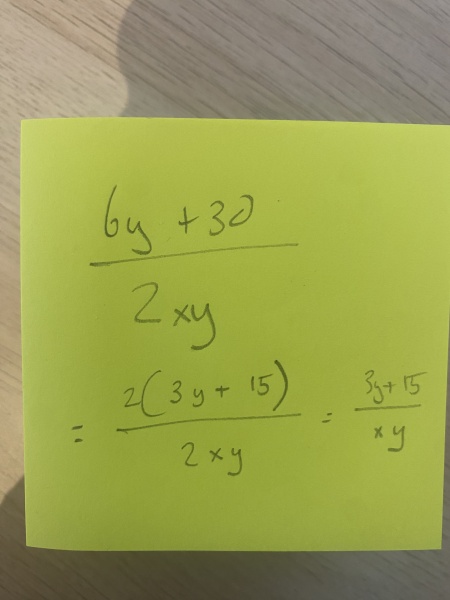 6y + 30
2xy
= 2(3y + 15) / 2xy = 3y + 15 / xy